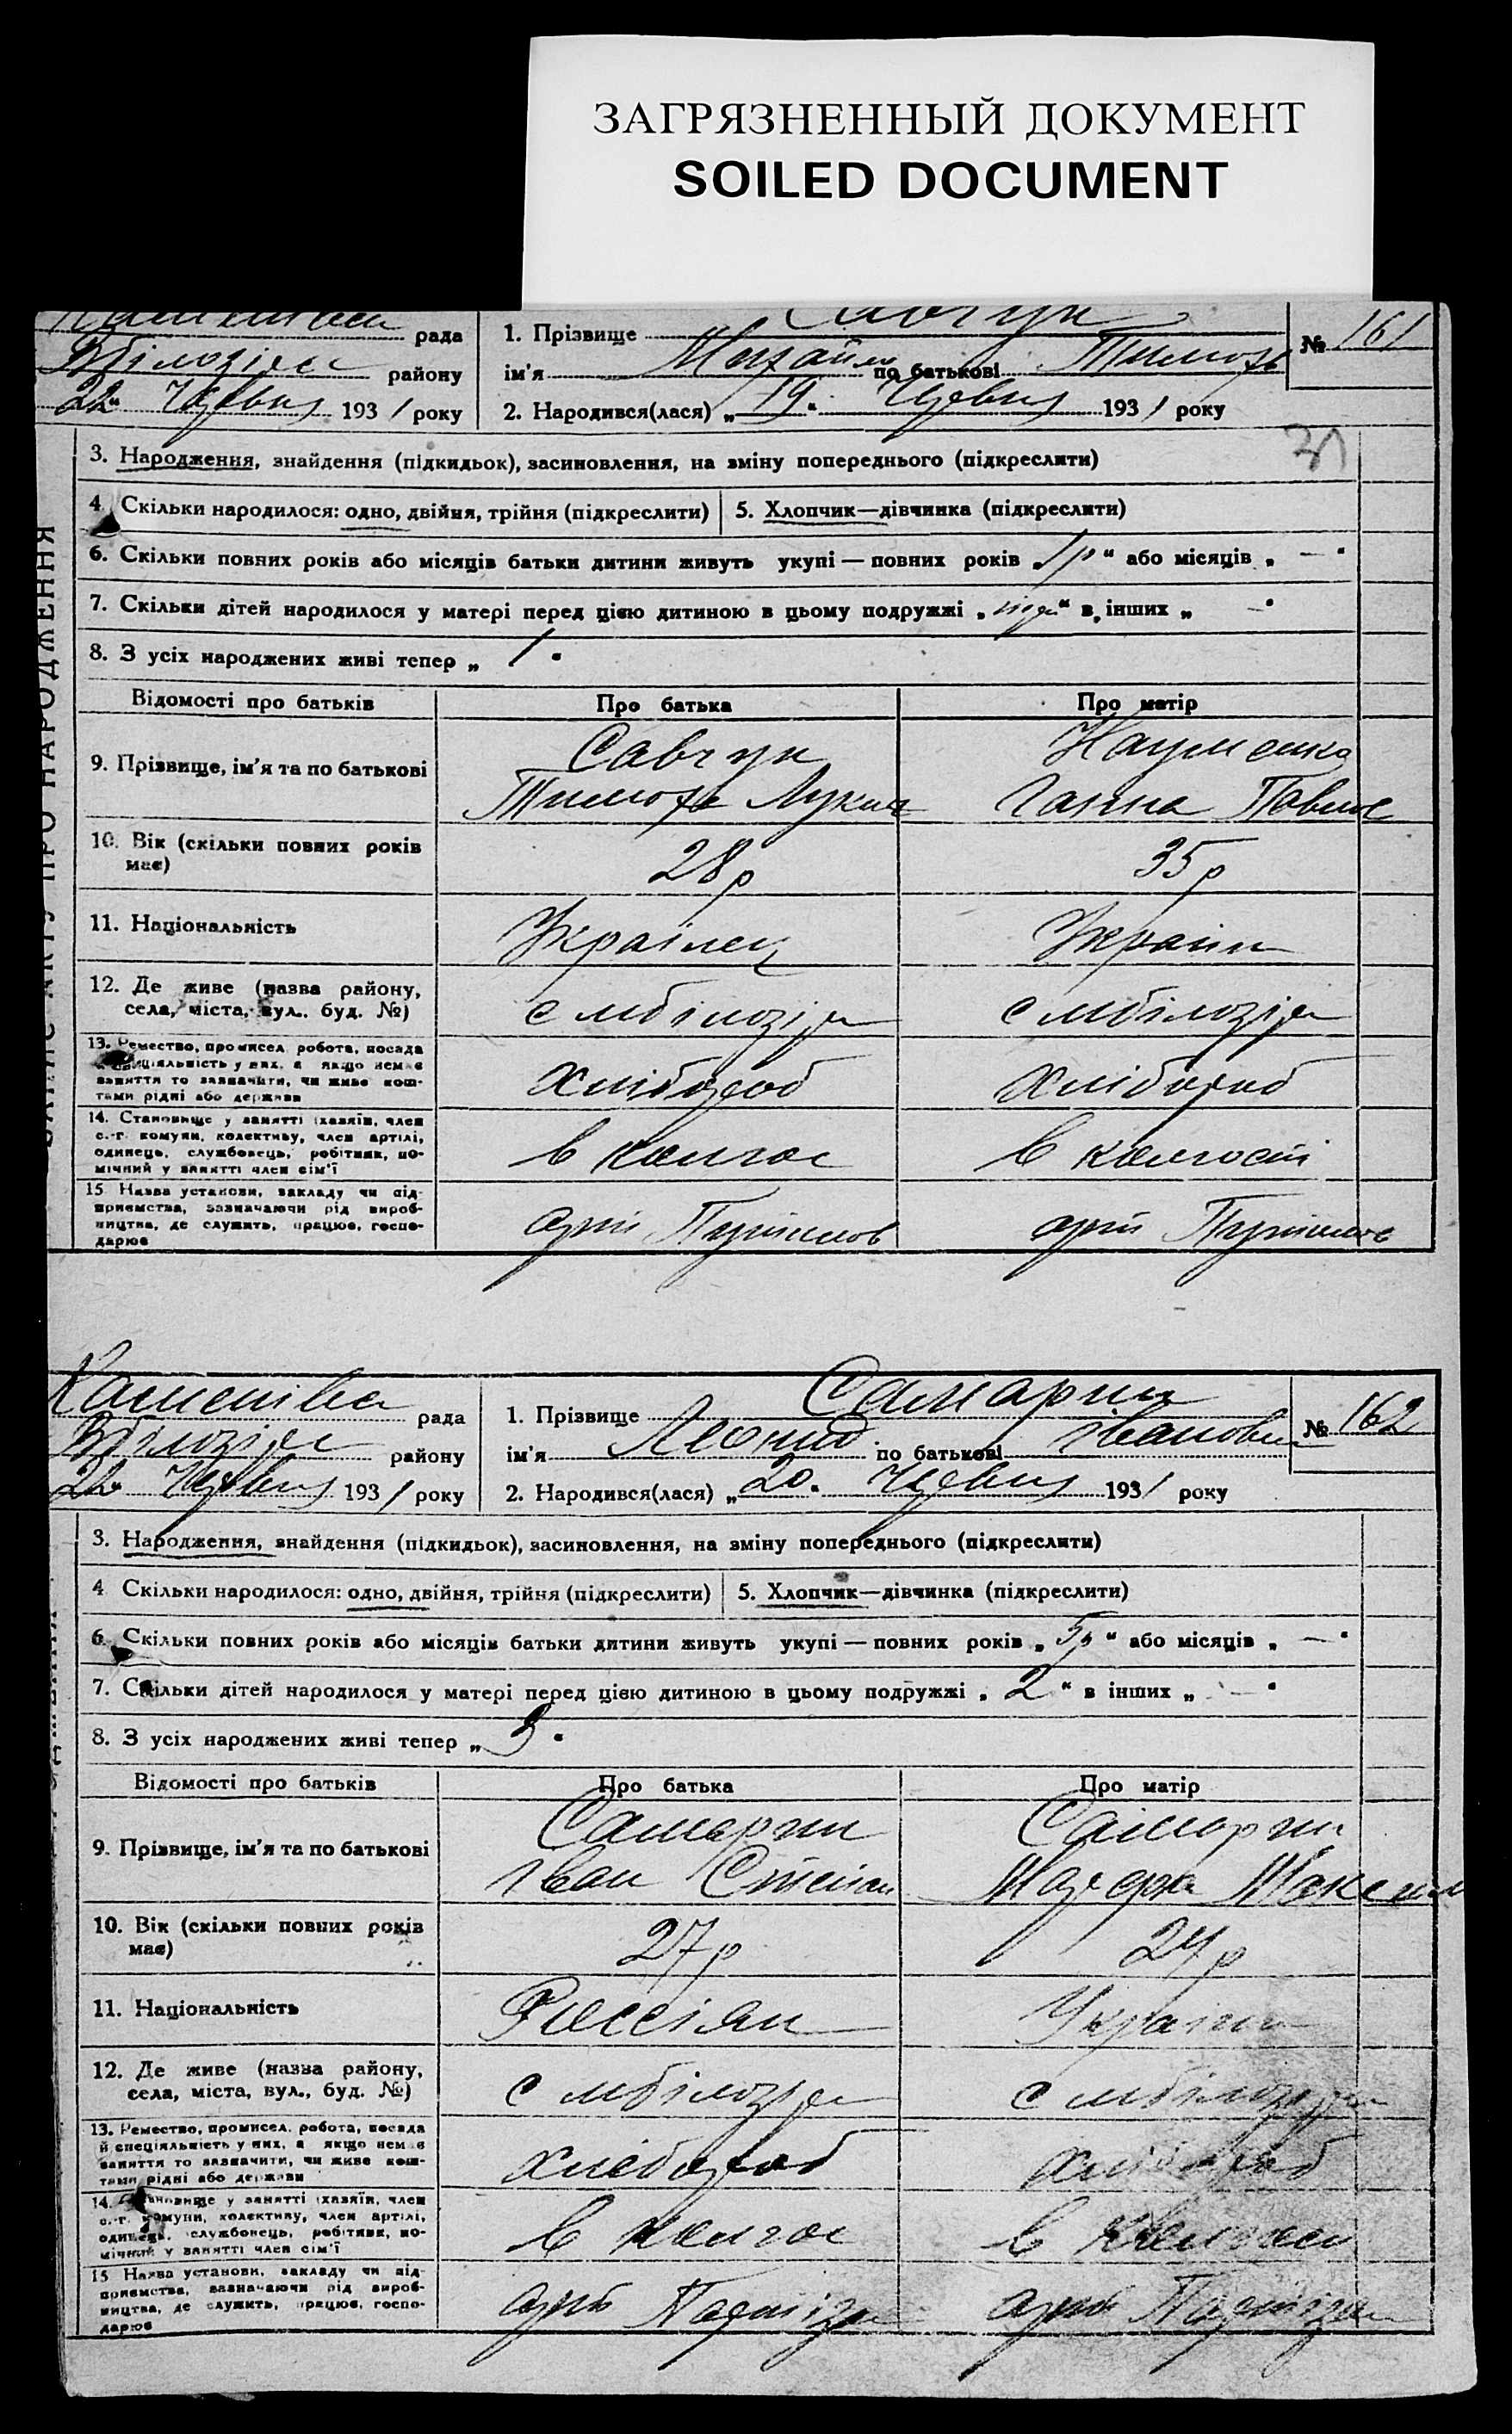 ЗАГРЯЗНЕННЫЙ ДОКУМЕНТ
SOILED DOCUMENT
рада
1. Прізвище Савчук
№ 161
району
ім'я Михайло по батькові Тимофь
22 Червня 1931 року
2. Народився(лася) „19" Червня 1931 року
31
3. Народження, знайдення (підкидьок), засиновлення, на зміну попереднього (підкреслити)
4. Скільки народилося: одно, двійня, трійня (підкреслити)
5. Хлопчик—дівчинка (підкреслити)
6. Скільки повних років або місяців батьки дитини живуть укупі — повних років „1р" або місяців „—"
7. Скільки дітей народилося у матері перед цією дитиною в цьому подружжі „ " в інших „—"
8. З усіх народжених живі тепер „1"
Відомості про батьків
Про батька
Про матір
9. Прізвище, ім'я та по батькові
Савчук
Тимофь Лукич
Науменко
Ганна Павлов
10. Вік (скільки повних років має)
28р
35р
11. Національність
Українец
Україн
12. Де живе (назва району, села, міста, вул., буд. №)
с мбілозірк
с мбілозірк
13. Ремество, промисел, робота, посада й спеціяльність у них, а якщо немає заняття то зазначити, чи живе коштами рідні або держави
хлібороб
хлібороб
14. Становище у занятті (хазяїн, член с.-г. комуни, колективу, член артілі, одинець, службовець, робітник, помічний у занятті член сім'ї
в колгос
в колгості
15. Назва установи, закладу чи підприємства, зазначаючи рід виробництва, де служить, працює, господарює
арт
арт
Каменівка рада
1. Прізвище Самарин
№ 162
Вбілозірк району
ім'я Леонид по батькові Іванович
22 Червня 1931 року
2. Народився(лася) „20" Червня 1931 року
3. Народження, знайдення (підкидьок), засиновлення, на зміну попереднього (підкреслити)
4 Скільки народилося: одно, двійня, трійня (підкреслити)
5. Хлопчик—дівчинка (підкреслити)
6. Скільки повних років або місяців батьки дитини живуть укупі — повних років „5р" або місяців „—"
7. Скільки дітей народилося у матері перед цією дитиною в цьому подружжі „2" в інших „—"
8. З усіх народжених живі тепер „3"
Відомості про батьків
Про батька
Про матір
9. Прізвище, ім'я та по батькові
Самарин
Іван Степан
Самарин
Максим
10. Вік (скільки повних років має)
27р
24р
11. Національність
Россіян
Україн
12. Де живе (назва району, села, міста, вул., буд. №)
с мбілозірк
с мбілозірк
13. Ремество, промисел, робота, посада й спеціяльність у них, а якщо немає заняття то зазначити, чи живе коштами рідні або держави
хлебороб
хлібороб
14. Становище у занятті (хазяїн, член с.-г. комуни, колективу, член артілі, одинець, службовець, робітник, помічний у занятті член сім'ї
в колгос
в колгосп
15 Назва установи, закладу чи підприємства, зазначаючи рід виробництва, де служить, працює, господарює
арть Партізан
арть Партізан